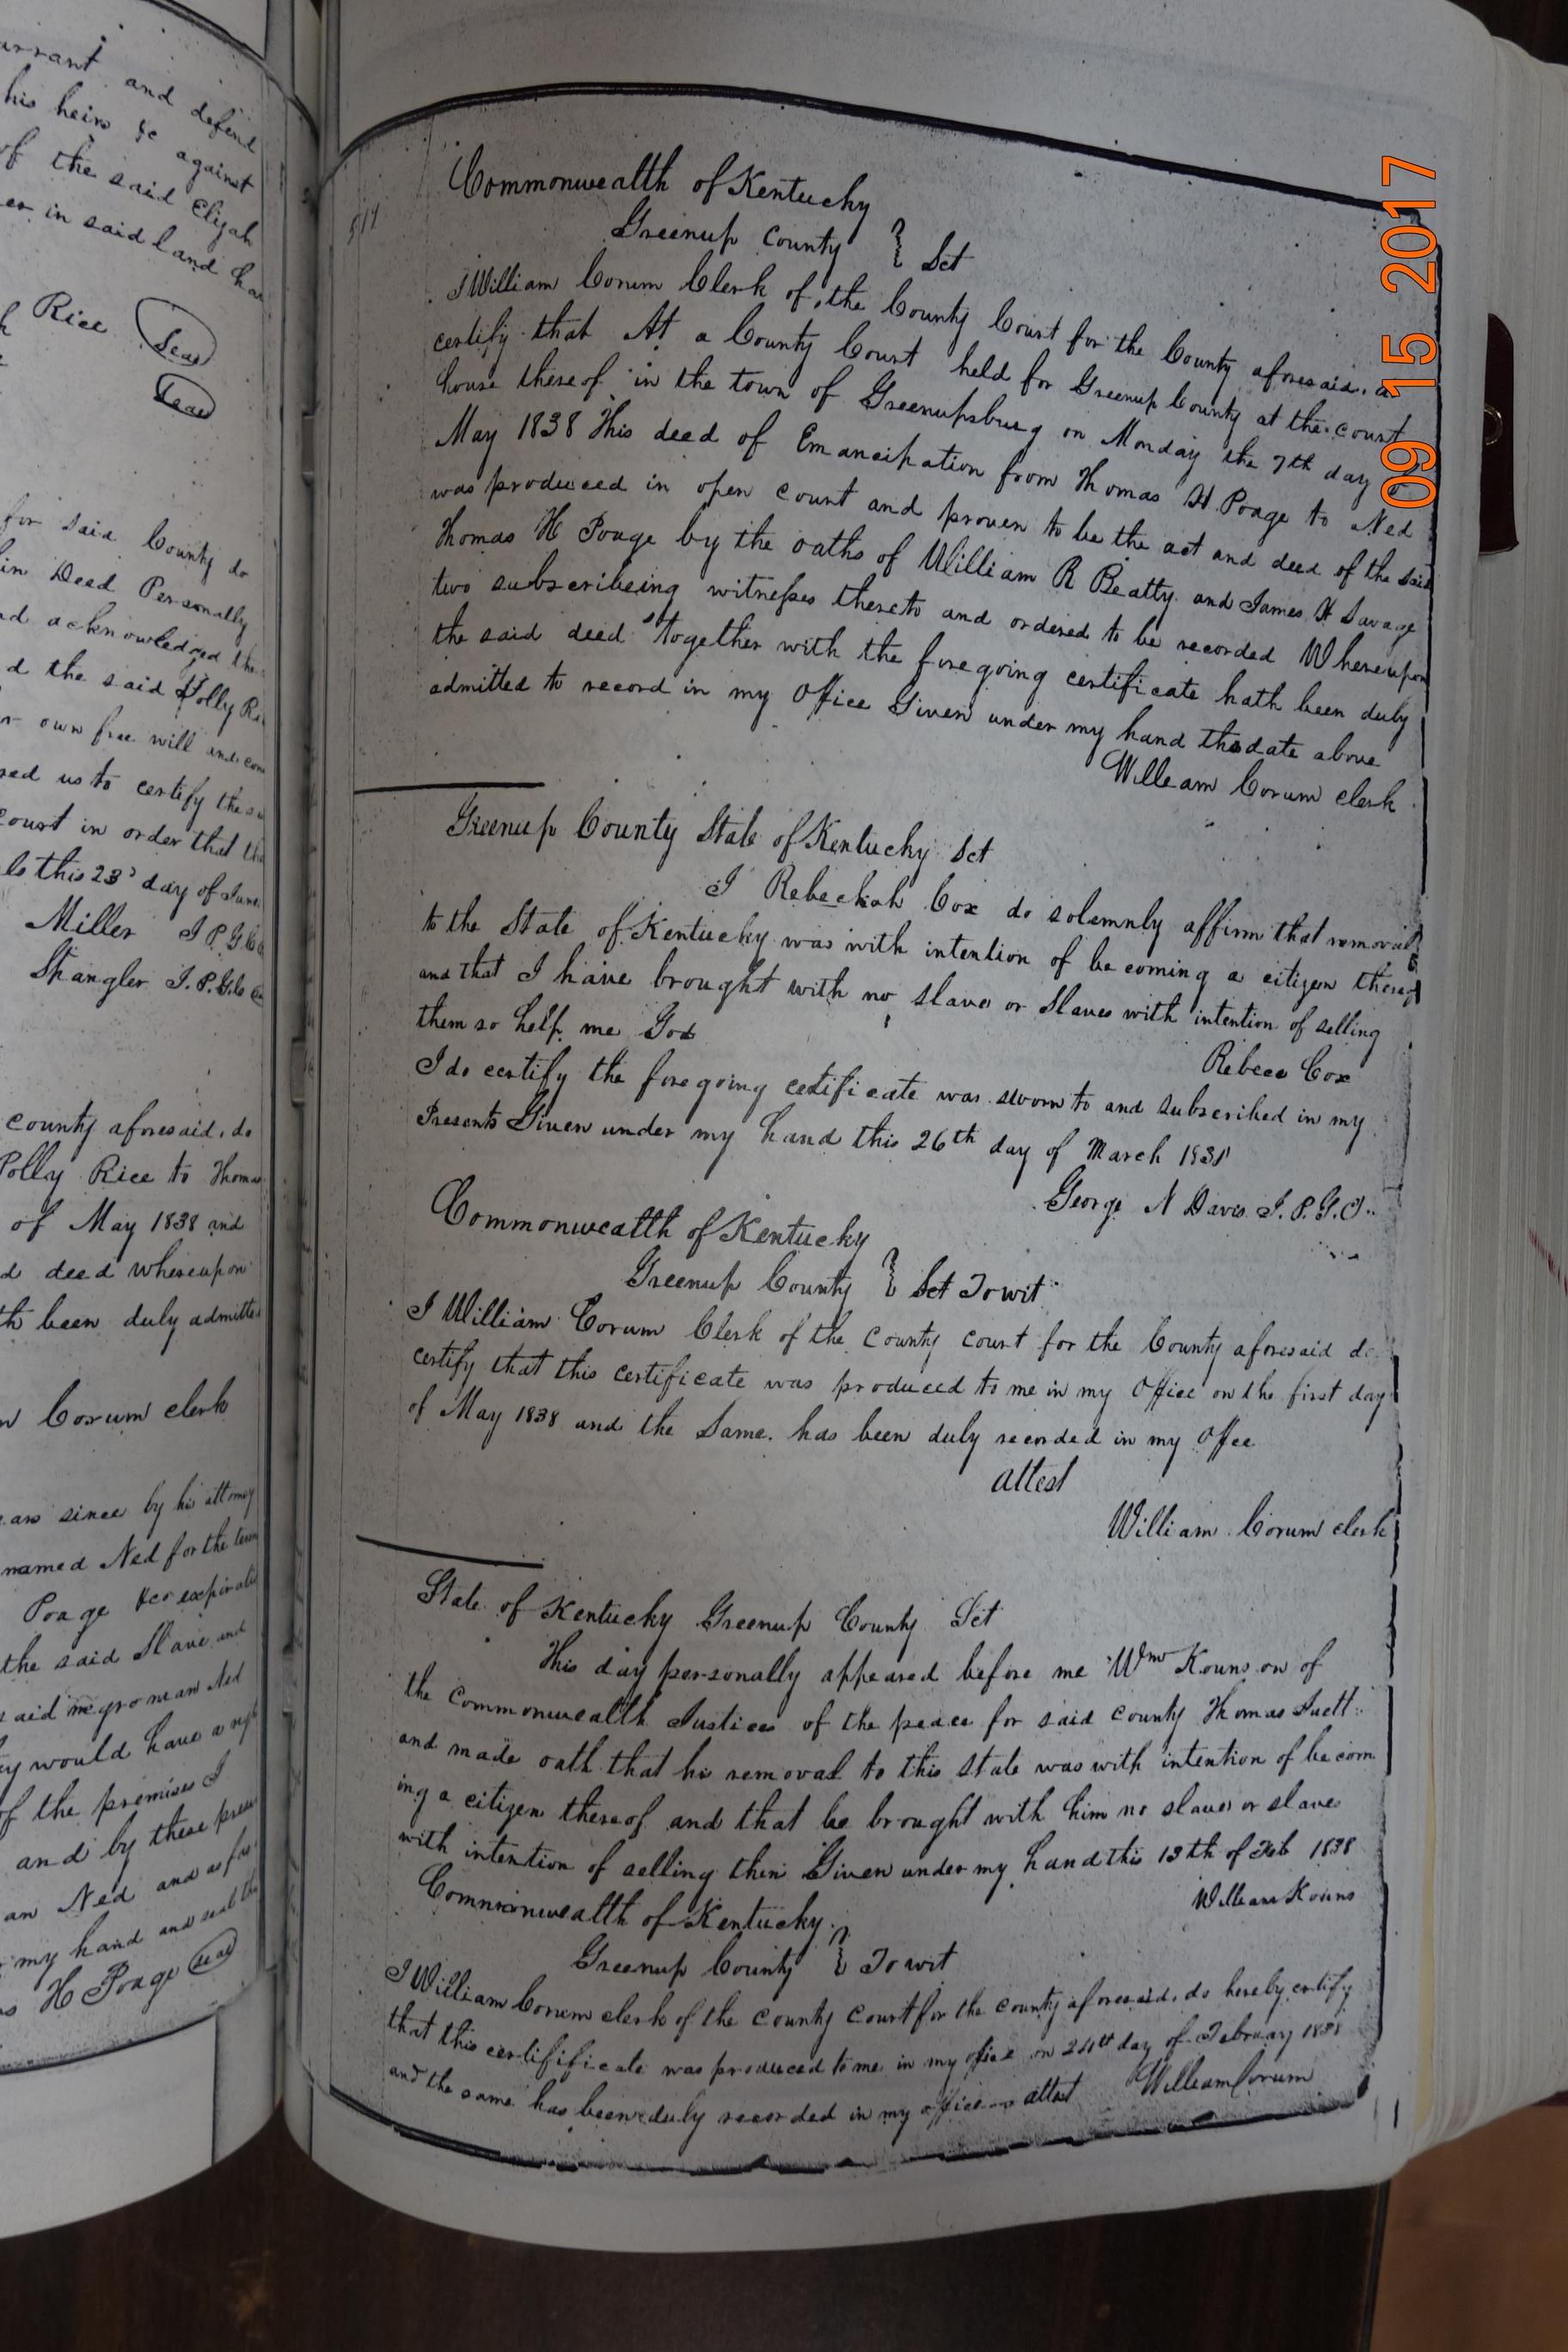 arrant and defend
his heirs &c against
of the said Elijah
er in said land
Rice Seal
Seal
for said County do
in Deed Personally
nd acknowledged the
d the said Polly
own free will and
red us to certify the
court in order that
this 23d day of June
Miller J P G C
Spangler J. P. G. C
county aforesaid, do
Polly Rice to Thomas
of May 1838 and
d deed whereupon
th been duly admitte
Corum clerk
ars since by his attorney
named Ned for the term
Poage
the said Slave and
said negro man Ned
y would have a
of the premises I
and by these
an Ned and as
my hand and seal
H Poage Seal
Commonwealth of Kentucky
Greenup County } Sct
I William Corum Clerk of the County Court for the County aforesaid, do
certify that At a County Court held for Greenup County at the court
house thereof in the town of Greenupsburg on Monday the 7th day of
May 1838 This deed of Emancipation from Thomas H Poage to Ned
was produced in open court and proven to be the act and deed of the said
Thomas H Poage by the oaths of William R Beatty and James H Savage
two subscribeing witnesses thereto and ordered to be recorded Whereupon
the said deed together with the foregoing certificate hath been duly
admitted to record in my Office Given under my hand the date above
William Corum clerk
Greenup County State of Kentucky Sct
I Rebeckah Cox do solemnly affirm that removal
to the State of Kentucky was with intention of becoming a citizen thereof
and that I have brought with no slave or Slaves with intention of selling
them so help me God
Rebeca Cox
I do certify the foregoing cetificate was sworn to and subscribed in my
Presents Given under my hand this 26th day of March 1838
George N Davis J. P. G. C.
Commonwealth of Kentucky
Greenup County } Sct Towit
I William Corum Clerk of the County court for the County aforesaid do
certify that this certificate was produced to me in my Office on the first day
of May 1838 and the Same has been duly recorded in my Offee
attest
William Corum clerk
State of Kentucky Greenup County Sct
This day personally appeared before me Wm Kouns on of
the commonwealth Justices of the peace for said county Thomas
and made oath that his removal to this state was with intention of becom
ing a citizen thereof and that he brought with him no slave or slaves
with intention of selling them Given under my hand this 13th of Feb 1838
William Kouns
Commonwealth of Kentucky
Greenup County } Towit
I William Corum clerk of the county court for the county aforesaid, do hereby certify
that this certifificate was produced to me in my office on 24th day of February 1838
and the same has been duly recorded in my office attest William Corum
09 15 2017